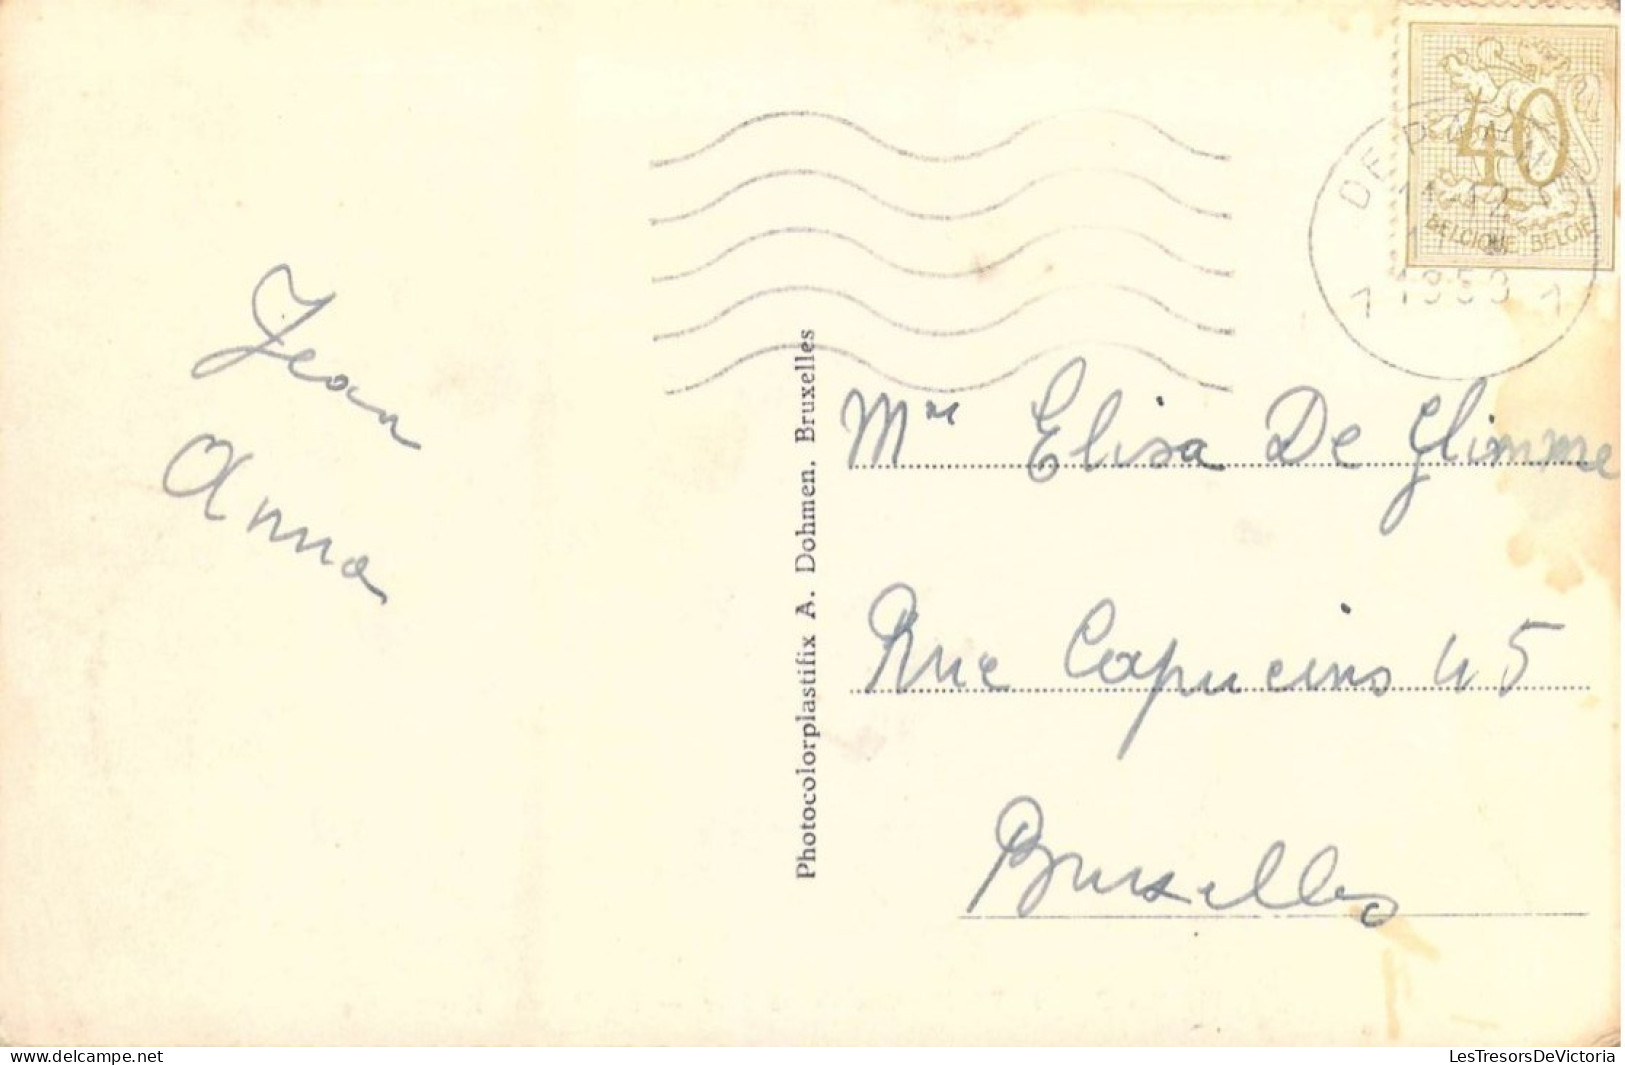 40
BELGIQUE BELGIË
DE PANNE
12
1 1953 1
Jean
Anna
Photocolorplastifix A. Dohmen, Bruxelles
Mme Elisa De Glimme
Rue Capucins 45
Bruxelles
delcampe.net
LesTresorsDeVictoria